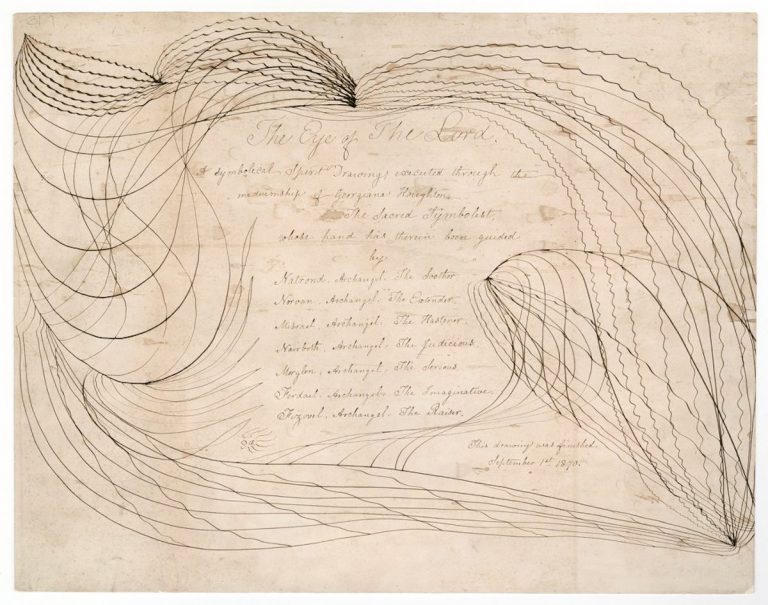 The Eye of The Lord.
A Symbolical Spirit Drawing, executed through the
mediumship of Georgiana Houghton,
The Sacred Symbolist,
whose hand has therein been guided
by
Natrond, Archangel, The Soother.
Norvan, Archangel, The Extender.
Misrael, Archangel, The Hastener.
Archangel, The Judicious.
Archangel, The Serious.
Archangel, The Imaginative.
Fozovel, Archangel, The Raiser.
This drawing was finished
September 1st 1870.